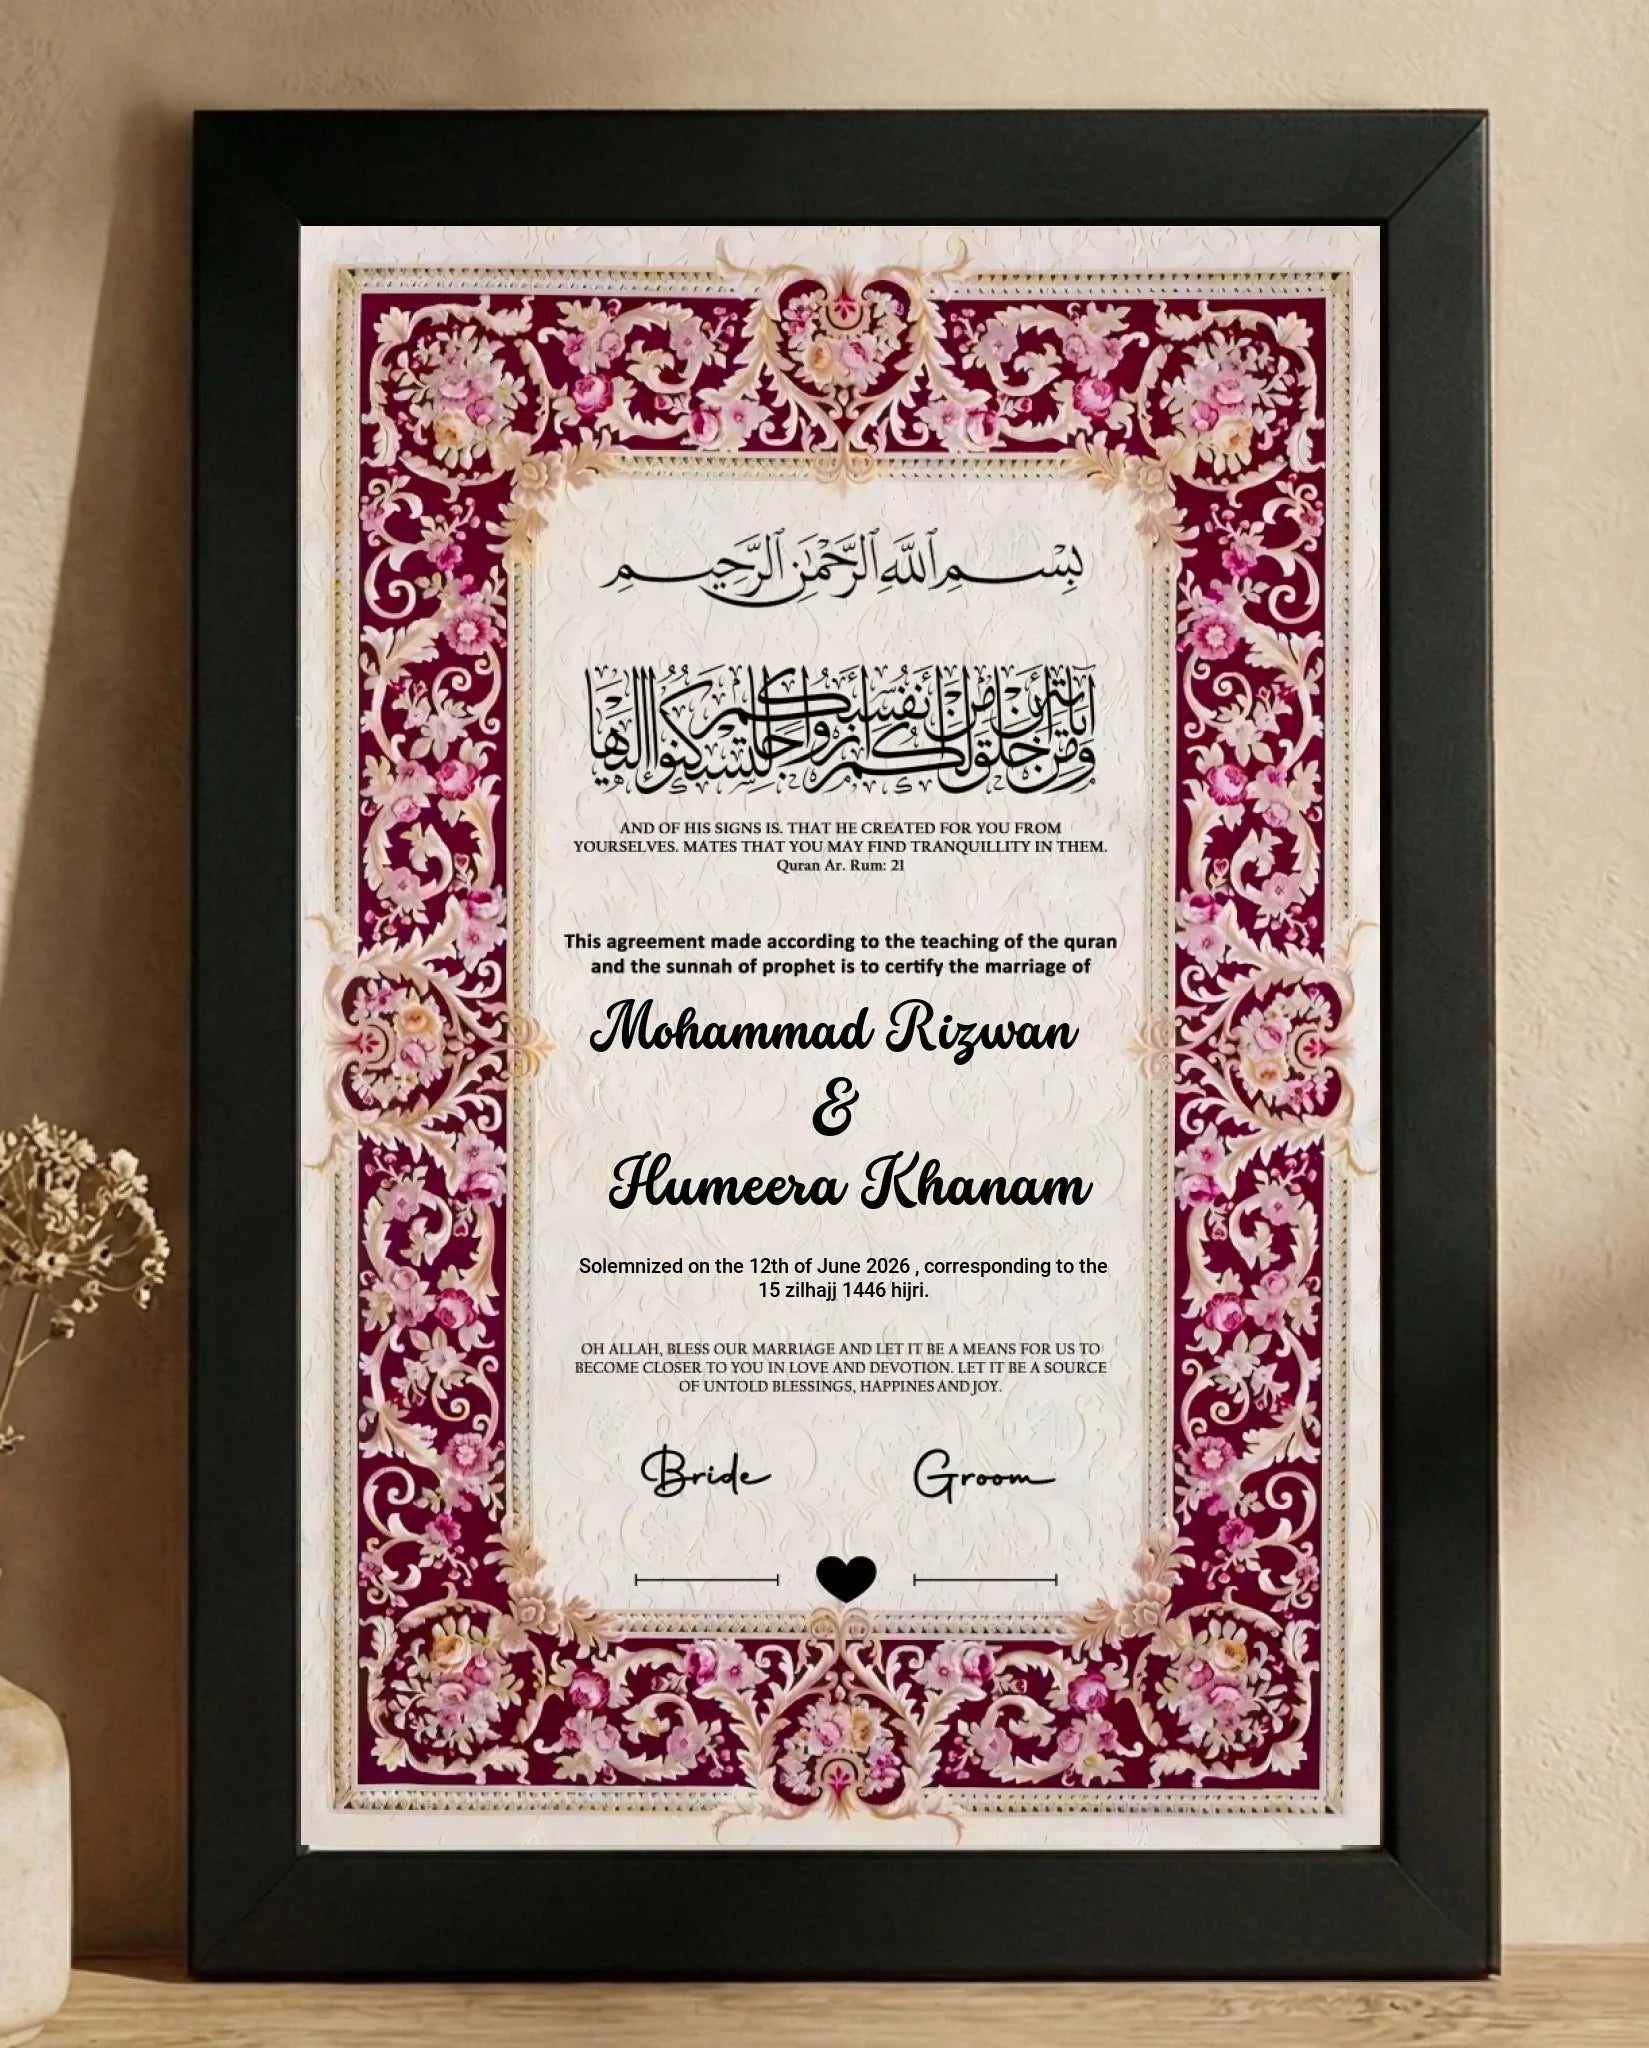 بِسْمِ ٱللَّهِ ٱلرَّحْمَٰنِ ٱلرَّحِيمِ
وَمِنْ آيَاتِهِ أَنْ خَلَقَ لَكُم مِّنْ أَنفُسِكُمْ أَزْوَاجًا لِّتَسْكُنُوا إِلَيْهَا
AND OF HIS SIGNS IS. THAT HE CREATED FOR YOU FROM
YOURSELVES. MATES THAT YOU MAY FIND TRANQUILLITY IN THEM.
Quran Ar. Rum: 21
This agreement made according to the teaching of the quran
and the sunnah of prophet is to certify the marriage of
Mohammad Rizwan
&
Humeera Khanam
Solemnized on the 12th of June 2026 , corresponding to the
15 zilhajj 1446 hijri.
OH ALLAH, BLESS OUR MARRIAGE AND LET IT BE A MEANS FOR US TO
BECOME CLOSER TO YOU IN LOVE AND DEVOTION. LET IT BE A SOURCE
OF UNTOLD BLESSINGS, HAPPINES AND JOY.
Bride Groom